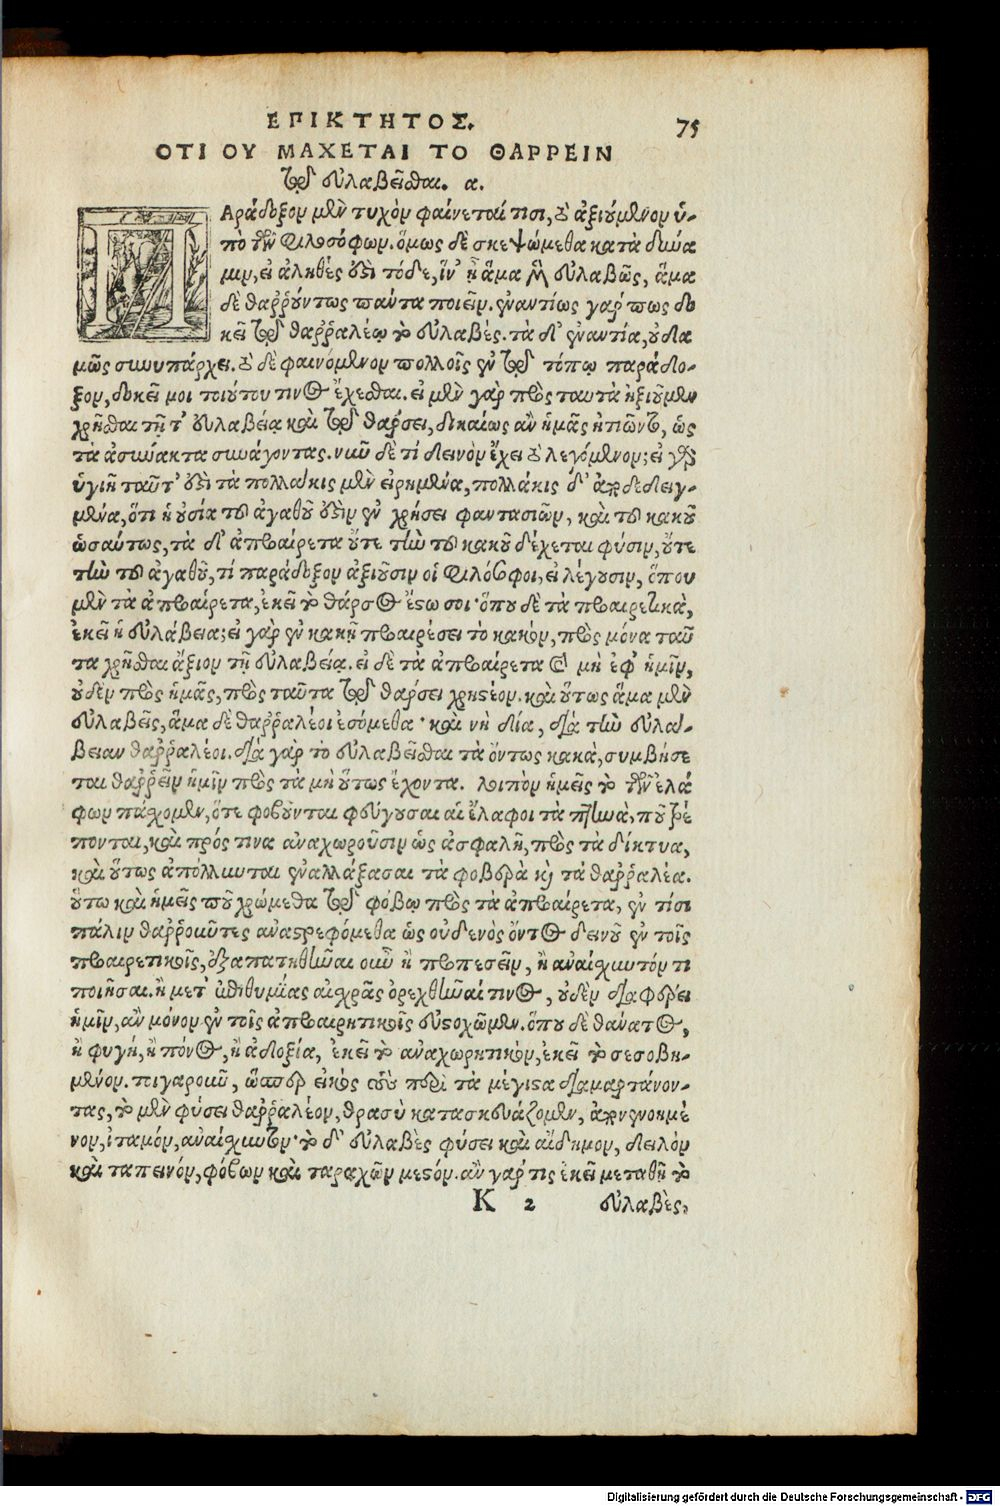 ΕΠΙΚΤΗΤΟΣ.
75
ΟΤΙ ΟΥ ΜΑΧΕΤΑΙ ΤΟ ΘΑΡΡΕΙΝ
τῷ εὐλαβεῖσθαι. α.
ΠΑράδοξον μὲν τυχὸν φαίνεταί τισι, τὸ ἀξιούμενον ὑ-
πὸ τῶν φιλοσόφων. ὅμως δὲ σκεψώμεθα κατὰ δύνα
μιν, εἰ ἀληθές ἐστι τόδε, ἵν' ᾖ ἅμα μὲν εὐλαβῶς, ἅμα
δὲ θαῤῥούντως πάντα ποιεῖν. ἐναντίως γάρ πως δο
κεῖ τῷ θαῤῥαλέῳ τὸ εὐλαβὲς. τὰ δ' ἐναντία, οὐδα
μῶς συνυπάρχει. τὸ δὲ φαινόμενον πολλοῖς ἐν τῷ τόπῳ παράδο-
ξον, δοκεῖ μοι τοιούτου τινὸς ἔχεσθαι. εἰ μὲν γὰρ πρὸς ταυτὰ ἠξιοῦμεν
χρῆσθαι τῇ τ' εὐλαβείᾳ καὶ τῷ θάρσει, δικαίως ἂν ἡμᾶς ᾐτιῶντο, ὡς
τὰ ἀσύνακτα συνάγοντας. νῦν δὲ τί δεινὸν ἔχει τὸ λεγόμενον; εἰ γὰρ
ὑγιῆ ταῦτ' ἐστὶ τὰ πολλάκις μὲν εἰρημένα, πολλάκις δ' ἀποδεδειγ-
μένα, ὅτι ἡ οὐσία τοῦ ἀγαθοῦ ἐστὶν ἐν χρήσει φαντασιῶν, καὶ τοῦ κακοῦ
ὡσαύτως, τὰ δ' ἀπροαίρετα οὔτε τὴν τοῦ κακοῦ δέχεται φύσιν, οὔτε
τὴν τοῦ ἀγαθοῦ, τί παράδοξον ἀξιοῦσιν οἱ φιλόσοφοι, εἰ λέγουσιν, ὅπου
μὲν τὰ ἀπροαίρετα, ἐκεῖ τὸ θάρσος ἔστω σοι· ὅπου δὲ τὰ προαιρετικὰ,
ἐκεῖ ἡ εὐλάβεια; εἰ γὰρ ἐν κακῇ προαιρέσει τὸ κακόν, πρὸς μόνα ταῦ
τα χρῆσθαι ἄξιον τῇ εὐλαβείᾳ. εἰ δὲ τὰ ἀπροαίρετα καὶ μὴ ἐφ' ἡμῖν,
οὐδὲν πρὸς ἡμᾶς, πρὸς ταῦτα τῷ θάρσει χρηστέον. καὶ οὕτως ἅμα μὲν
εὐλαβεῖς, ἅμα δὲ θαῤῥαλέοι ἐσόμεθα· καὶ νὴ δία, διὰ τὴν εὐλά-
βειαν θαῤῥαλέοι. διὰ γὰρ τὸ εὐλαβεῖσθαι τὰ ὄντως κακὰ, συμβήσε
ται θαῤῥεῖν ἡμῖν πρὸς τὰ μὴ οὕτως ἔχοντα. λοιπὸν ἡμεῖς τὸ τῶν ἐλά
φων πάσχομεν, ὅτε φοβοῦνται φεύγουσαι αἱ ἔλαφοι τὰ πτηνὰ, ποῦ τρέ
πονται, καὶ πρός τινα ἀναχωροῦσιν ὡς ἀσφαλῆ, πρὸς τὰ δίκτυα,
καὶ οὕτως ἀπόλλυνται ἐναλλάξασαι τὰ φοβερὰ καὶ τὰ θαῤῥαλέα.
οὕτω καὶ ἡμεῖς ποῦ χρώμεθα τῷ φόβῳ πρὸς τὰ ἀπροαίρετα, ἐν τίσι
πάλιν θαῤῥοῦντες ἀναστρεφόμεθα ὡς οὐδενὸς ὄντος δεινοῦ ἐν τοῖς
προαιρετικοῖς, ἐξαπατηθῆναι οὖν ἢ προπεσεῖν, ἢ ἀναίσχυντόν τι
ποιῆσαι. ἢ μετ' ἐπιθυμίας αἰσχρᾶς ὀρεχθῆναί τινος, οὐδὲν διαφέρει
ἡμῖν, ἂν μόνον ἐν τοῖς ἀπροαιρητικοῖς εὐστοχῶμεν. ὅπου δὲ θάνατος,
ἢ φυγή, ἢ πόνος, ἢ ἀδοξία, ἐκεῖ τὸ ἀναχωρητικὸν, ἐκεῖ τὸ σεσοβη-
μένον. τιγαροῦν, ὥσπερ εἰκὸς τοὺς περὶ τὰ μέγιστα διαμαρτάνον-
τας, τὸ μὲν φύσει θαῤῥαλέον, θρασὺ κατασκευάζομεν, ἀπονενοημέ
νον, ἰταμόν, ἀναίσχυντον· τὸ δ' εὐλαβὲς φύσει καὶ αἴδημον, δειλὸν
καὶ ταπεινόν, φόβων καὶ ταραχῶν μεστόν. ἂν γάρ τις ἐκεῖ μεταθῇ τὸ
K 2 εὐλαβὲς,
Digitalisierung gefördert durch die Deutsche Forschungsgemeinschaft - DFG